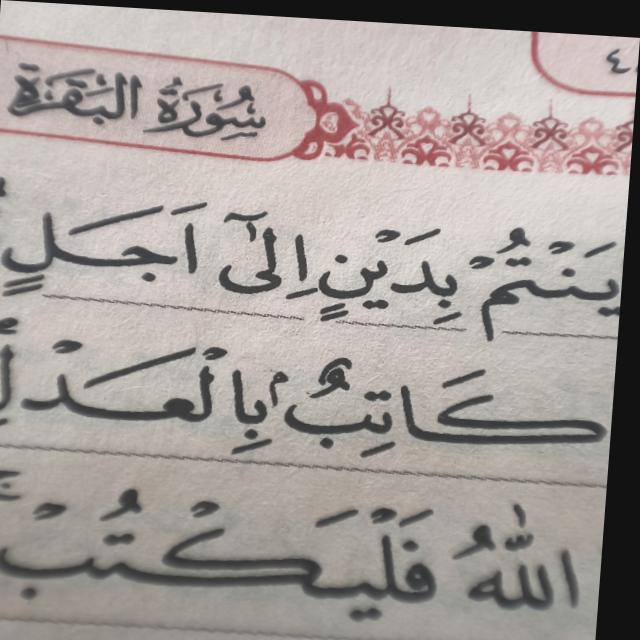 سُورَةُ الْبَقَرَةِ ٤
يَنْتُمْ بِدَيْنٍ اِلٰٓى اَجَلٍ
كَاتِبٌ بِالْعَدْلِ
اللّٰهُ فَلْيَكْتُبْ